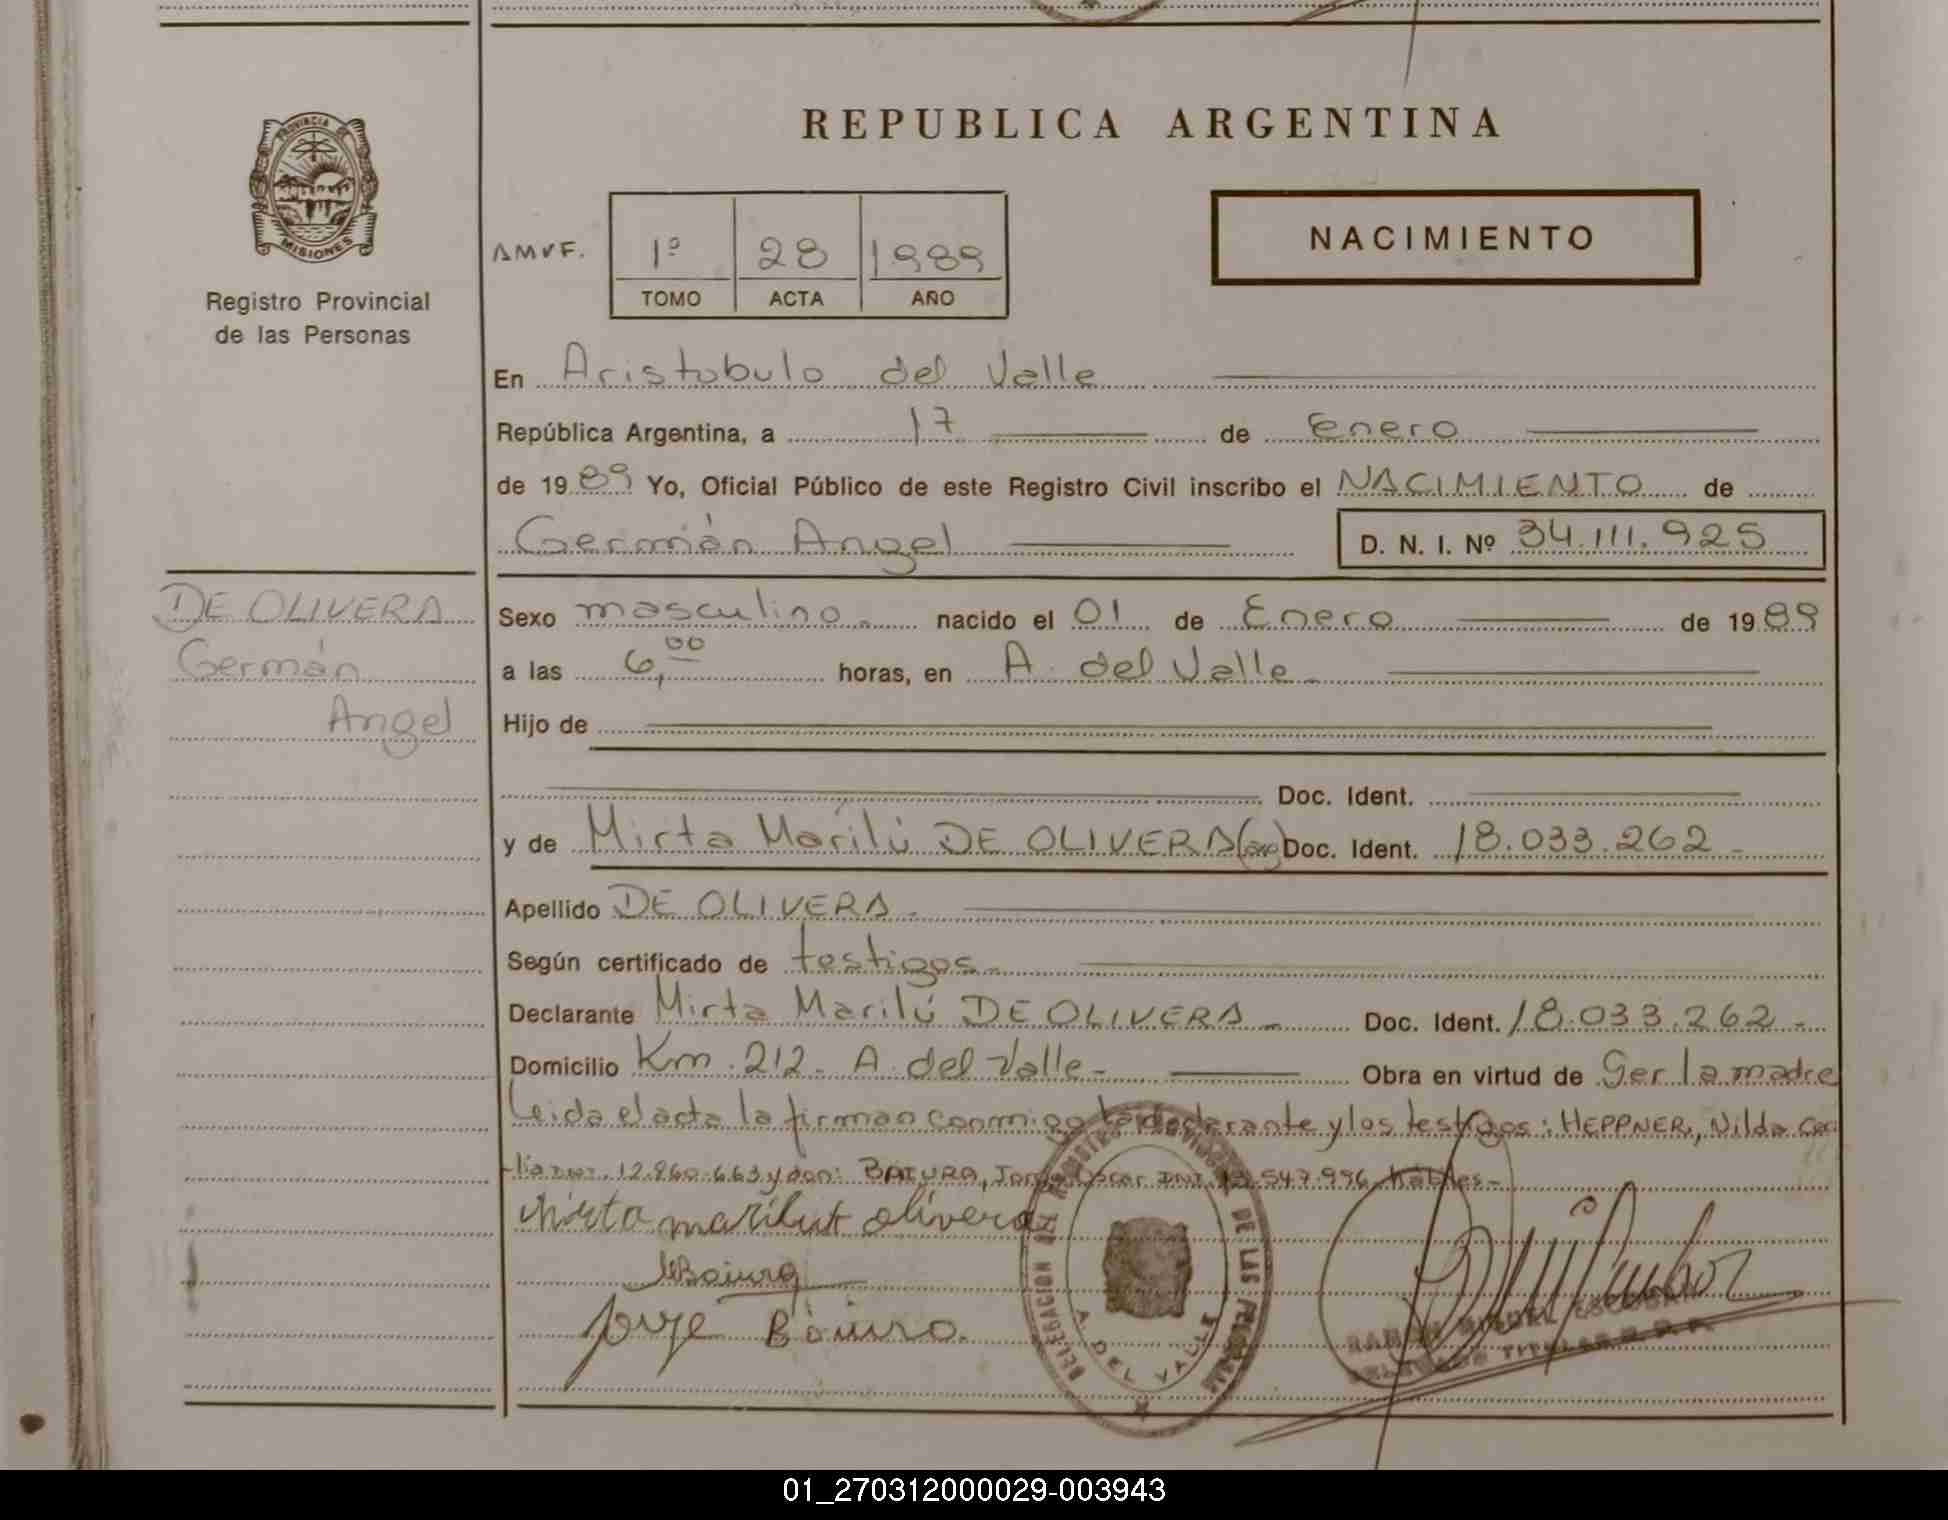 PROVINCIA DE
MISIONES
Registro Provincial
de las Personas
REPUBLICA ARGENTINA
NACIMIENTO
AMVF.
1º 28 1989
TOMO ACTA AÑO
En Aristobulo del Valle
República Argentina, a 17 de Enero
de 1989 Yo, Oficial Público de este Registro Civil inscribo el NACIMIENTO de
Germán Angel D. N. I. Nº 34.111.925
DE OLIVERA
Germán
Angel
Sexo masculino. nacido el 01 de Enero de 1989
a las 6,00 horas, en A. del Valle
Hijo de
Doc. Ident.
y de Mirta Marilú DE OLIVERA Doc. Ident. 18.033.262
Apellido DE OLIVERA.
Según certificado de testigos
Declarante Mirta Marilú DE OLIVERA Doc. Ident. 18.033.262
Domicilio Km. 212. A. del Valle Obra en virtud de Ser la madre
Leida el acta la firman conmigo la declarante y los testigos: HEPPNER, Nilda Ceci
lia 12.860.663 y don: BAIURA, Jorge Oscar 547.996 hábiles
Mirta marilut olivera
Jorge
DELEGACION DEL REGISTRO DE LAS PERSONAS
A. DEL VALLE
RAMON MIGUEL ESCOBAR
DELEGADO TITULAR
01_270312000029-003943